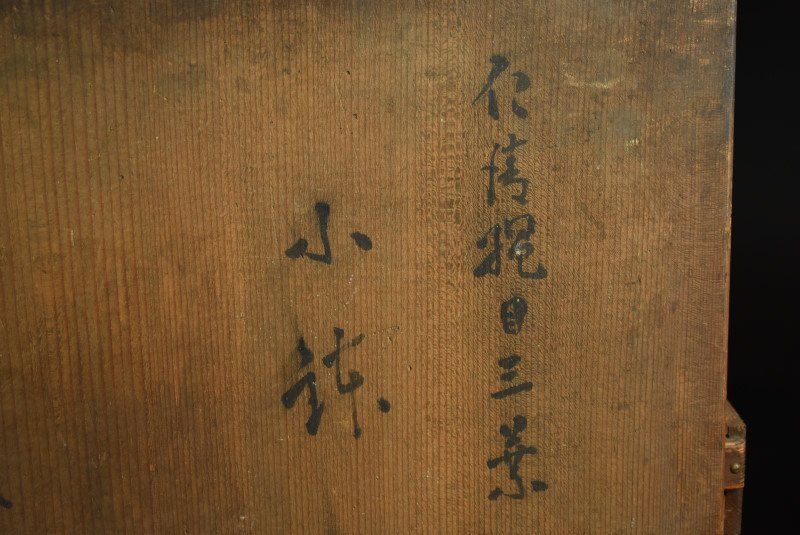 仁清縄目三葉
小鉢